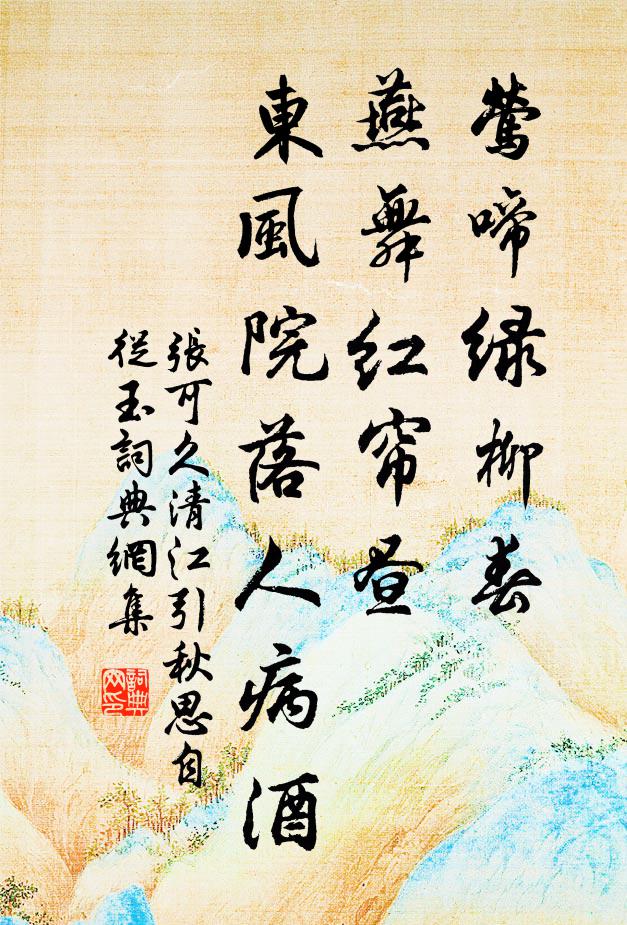 鶯啼綠柳春
燕舞紅帘晝
東風院落人病酒
張可久清江引秋思自
從玉詞典網集
詞典
网印